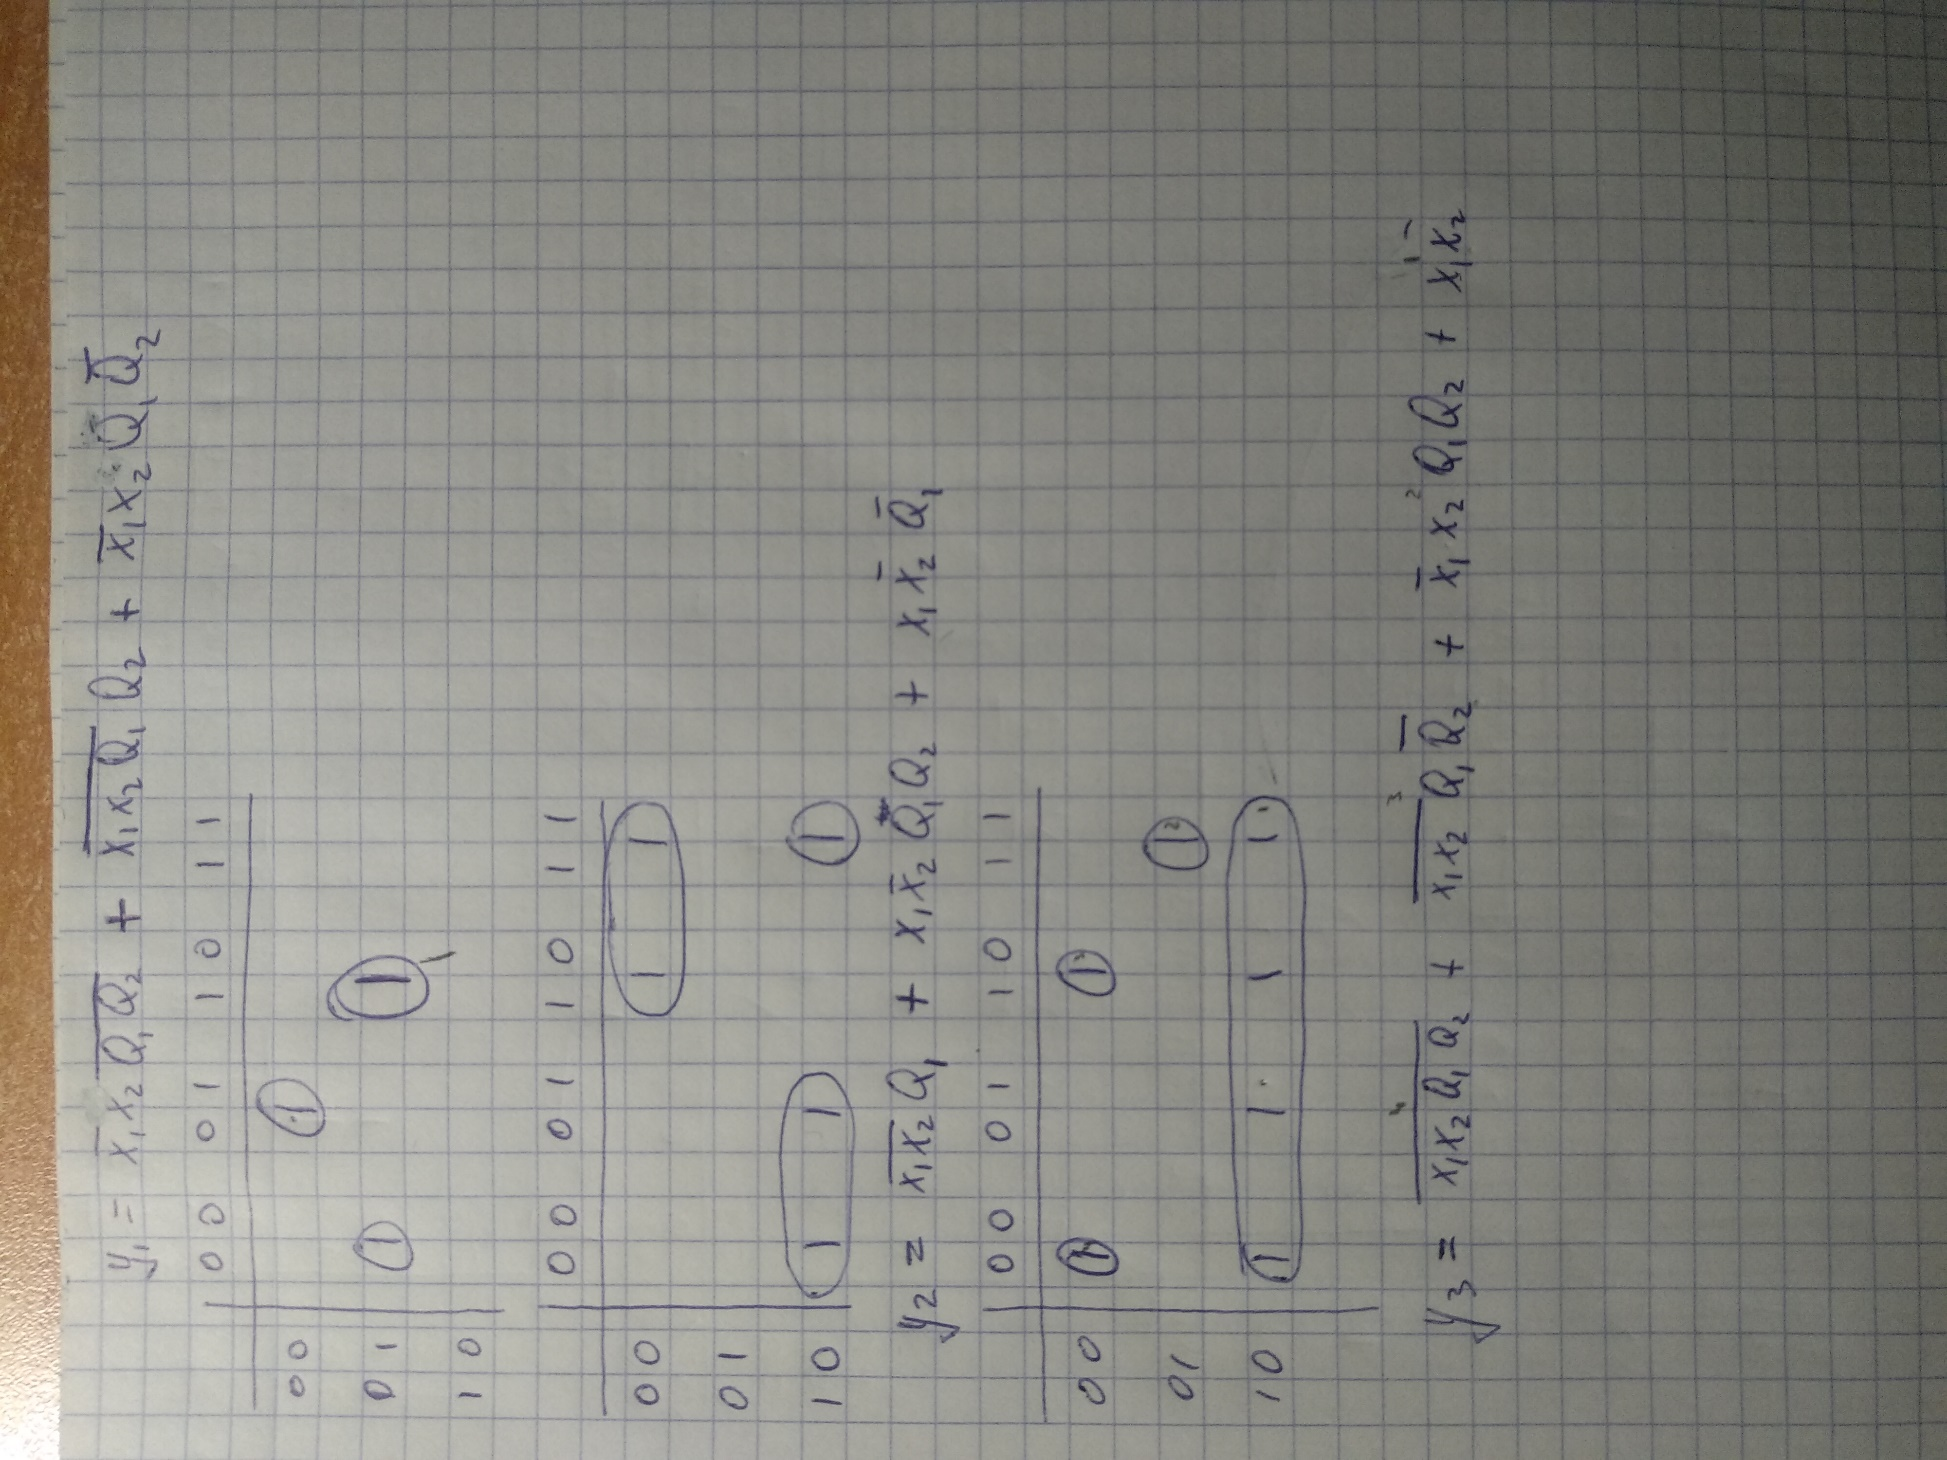 y₁ = x̅₁x₂Q̅₁Q̅₂ + x̅₁x̅₂Q̅₁Q₂ + x̅₁x₂Q₁Q̅₂
00 01 10 11
00 1
01 1 1
10
00 01 10 11
00 1 1
01
10 1 1 1
y₂ = x̅₁x̅₂Q₁ + x₁x̅₂Q₁Q₂ + x₁x̅₂Q̅₁
00 01 10 11
00 1 1
01 1
10 1 1 1 1
y₃ = x̅₁x̅₂Q̅₁Q̅₂ + x̅₁x̅₂Q₁Q̅₂ + x̅₁x₂Q₁Q₂ + x₁x̅₂